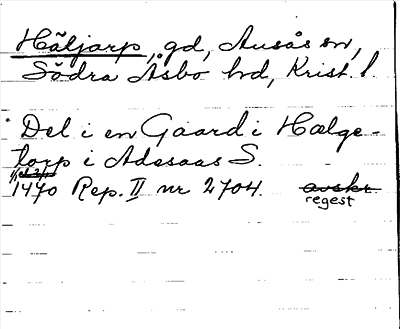 Häljarp, gd, Ausås sn,
Södra Åsbo hd, Krist. l.
Del i en Gaard i Hælge-
torp i Adesaas S.
1470 Rep. II nr 2704. avskr.
regest